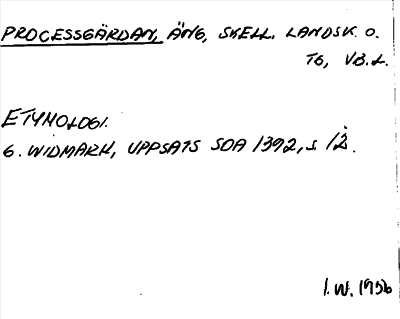 PROCESSGÄRDAN, ÄNG, SKELL. LANDSK. O.
TG, VB.L.
ETYMOLOGI.
G. WIDMARK, UPPSATS SOA 1392, s. 12.
I.W. 1956